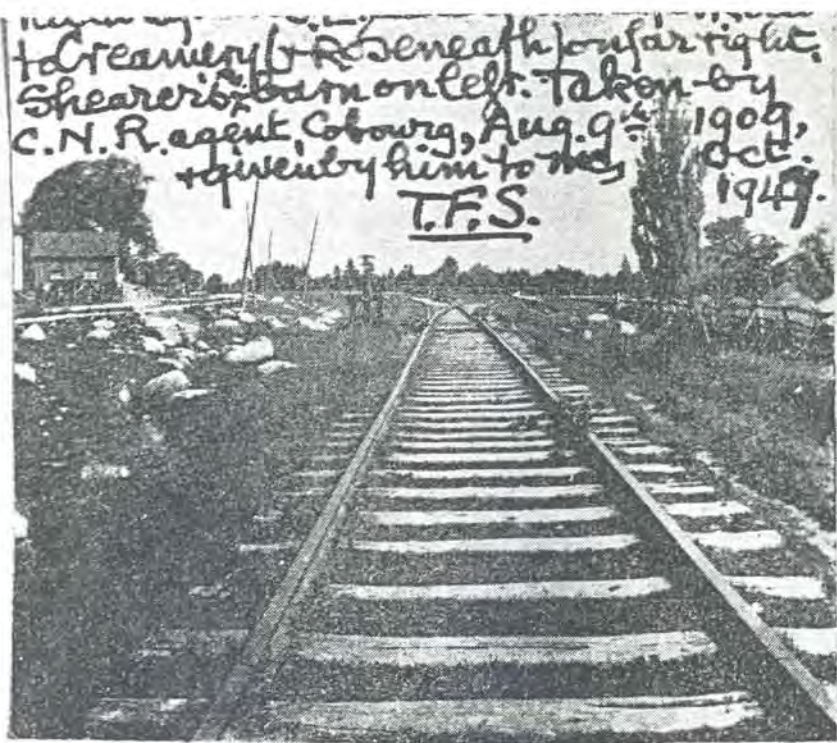 to Creamery (& Roseneath) on far right.
Shearer's barn on left. Taken by
C.N.R. agent, Cobourg, Aug. 9th 1909,
+ given by him to me, Oct.
1949.
T.F.S.